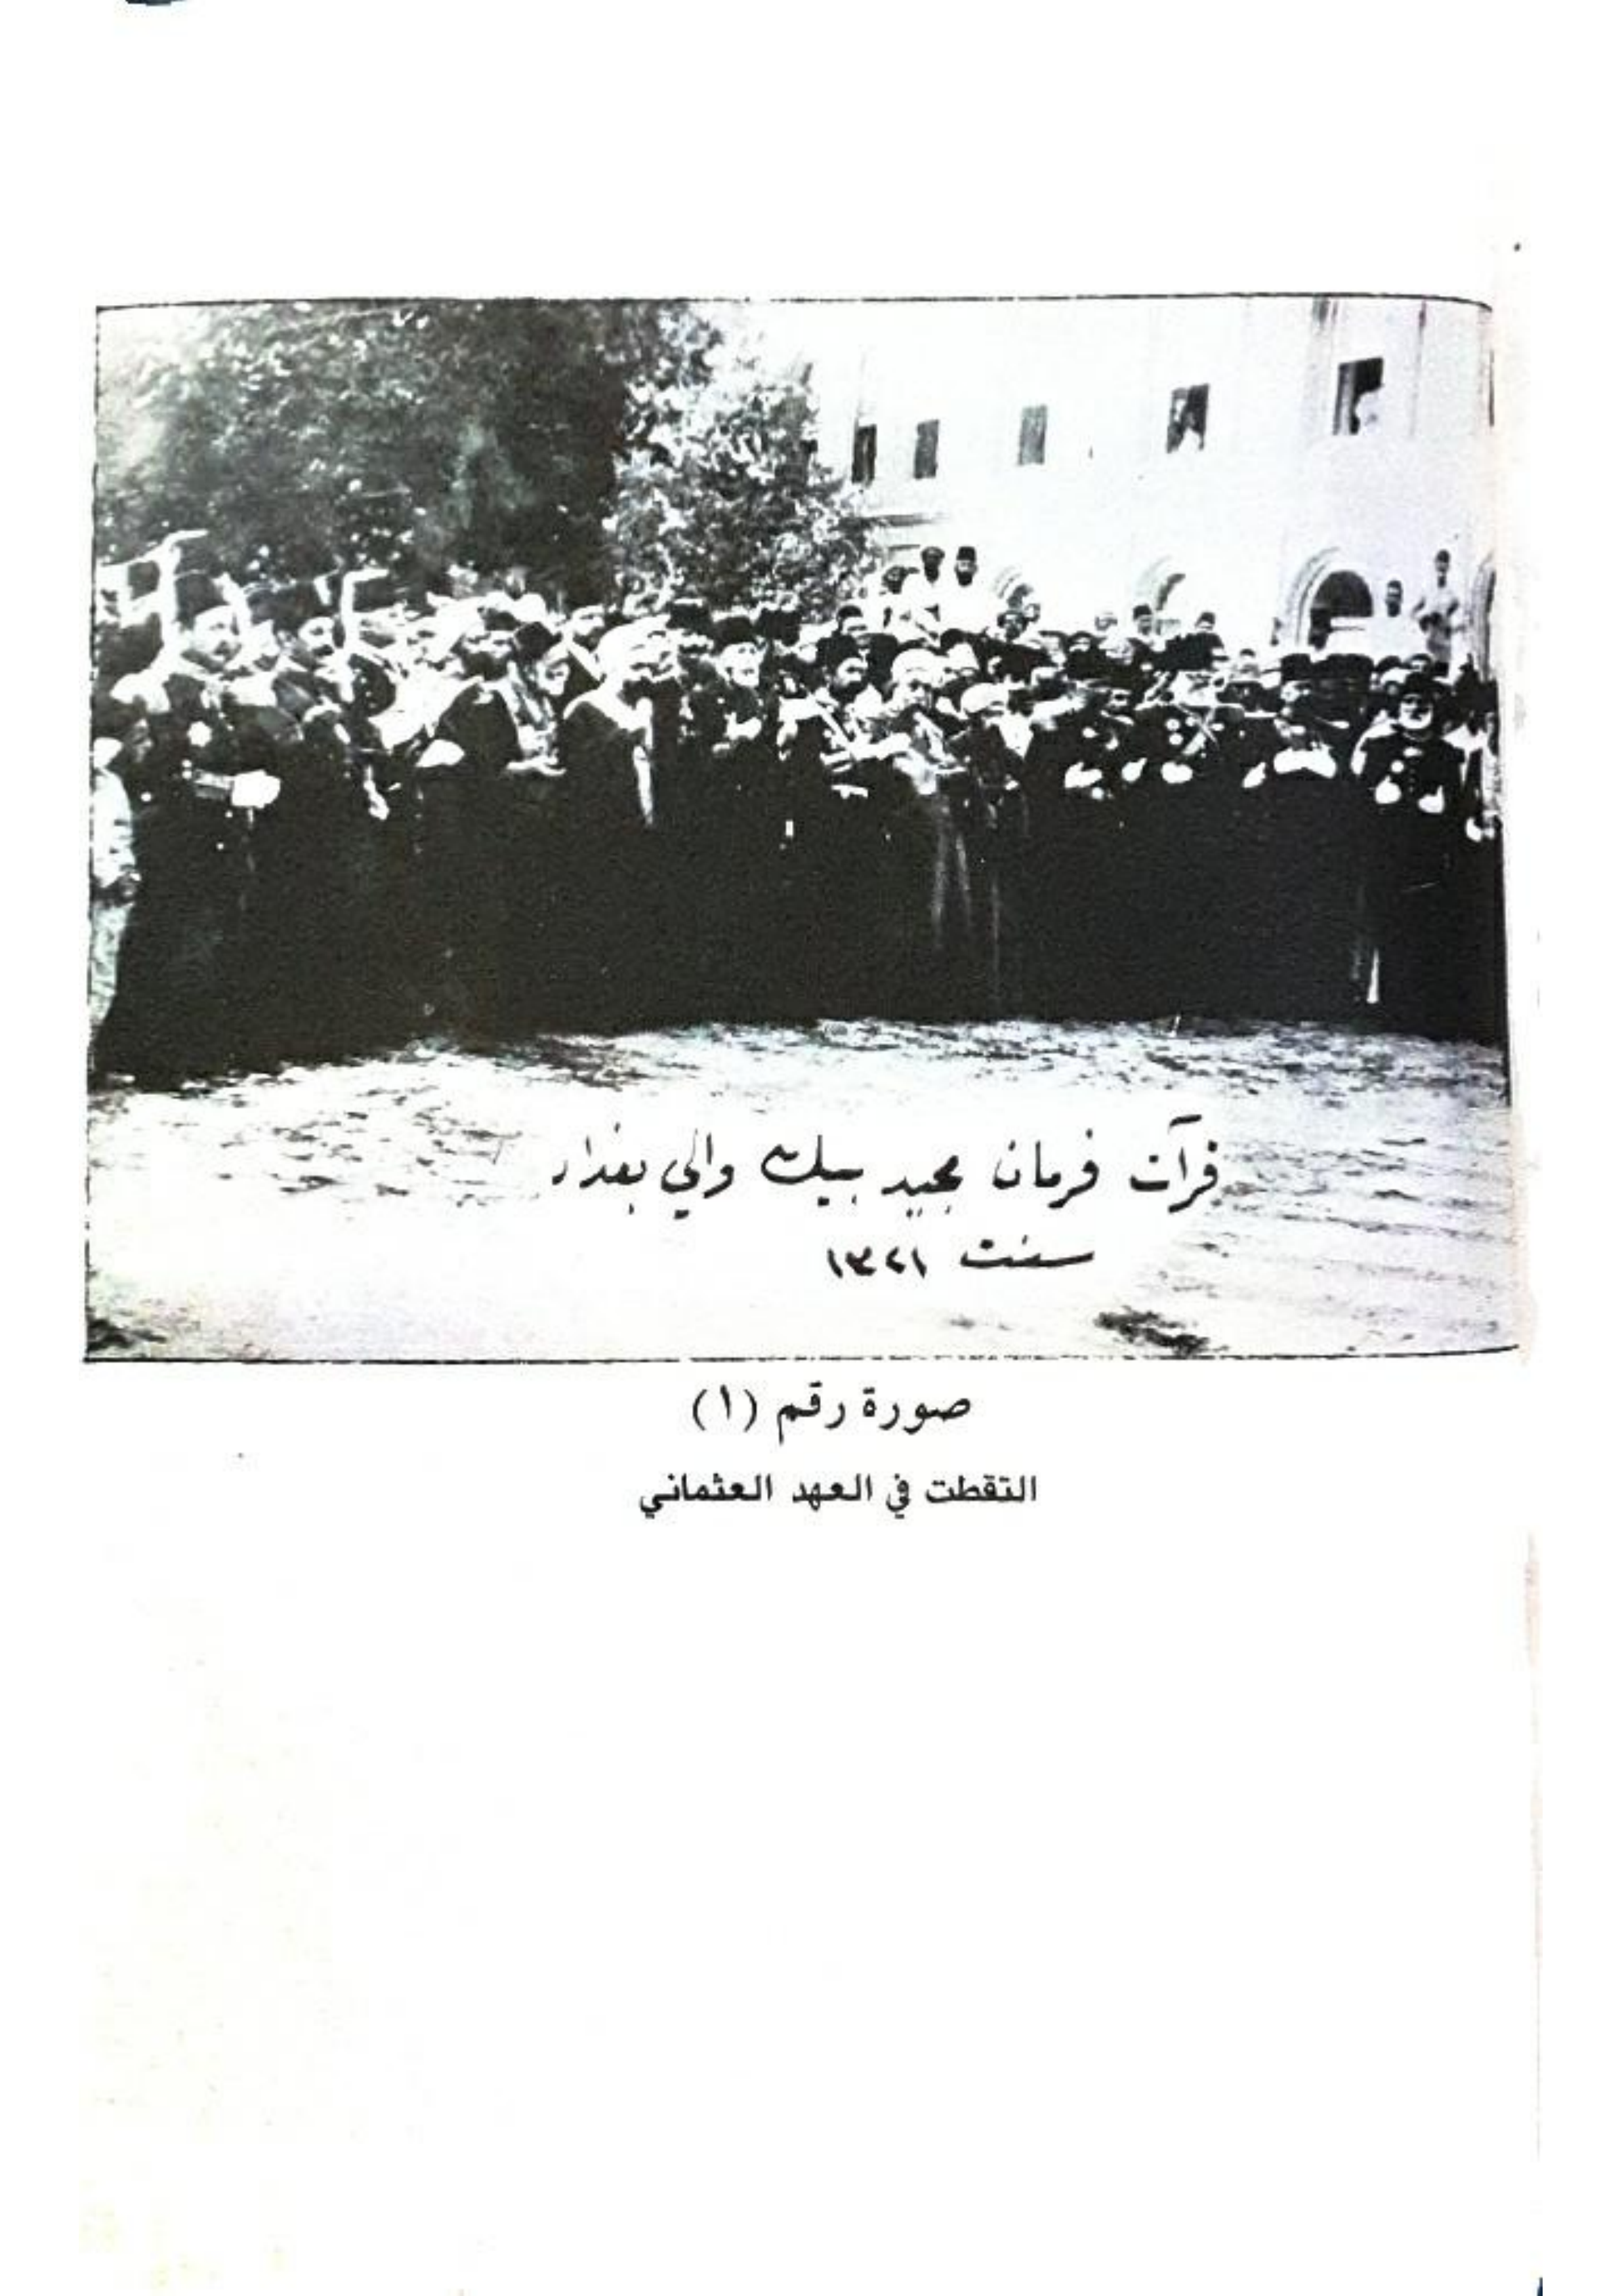 قرآت فرمان مجيد بيك والي بغداد
سنت ١٣٢١
صورة رقم (١)
التقطت في العهد العثماني